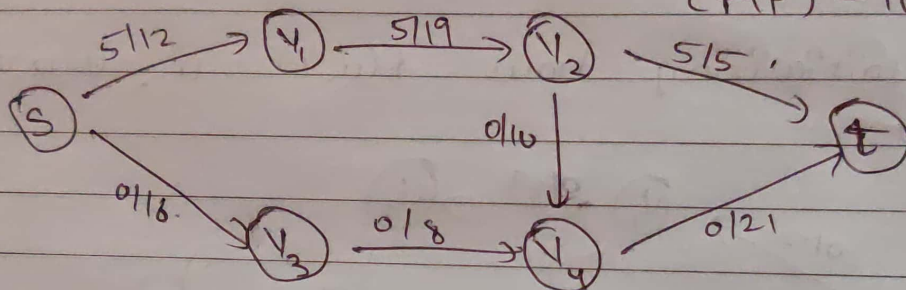 5/12
V1
5/19
V2
5/5.
S
0/10
t
0/16.
V3
0/8
V4
0/21